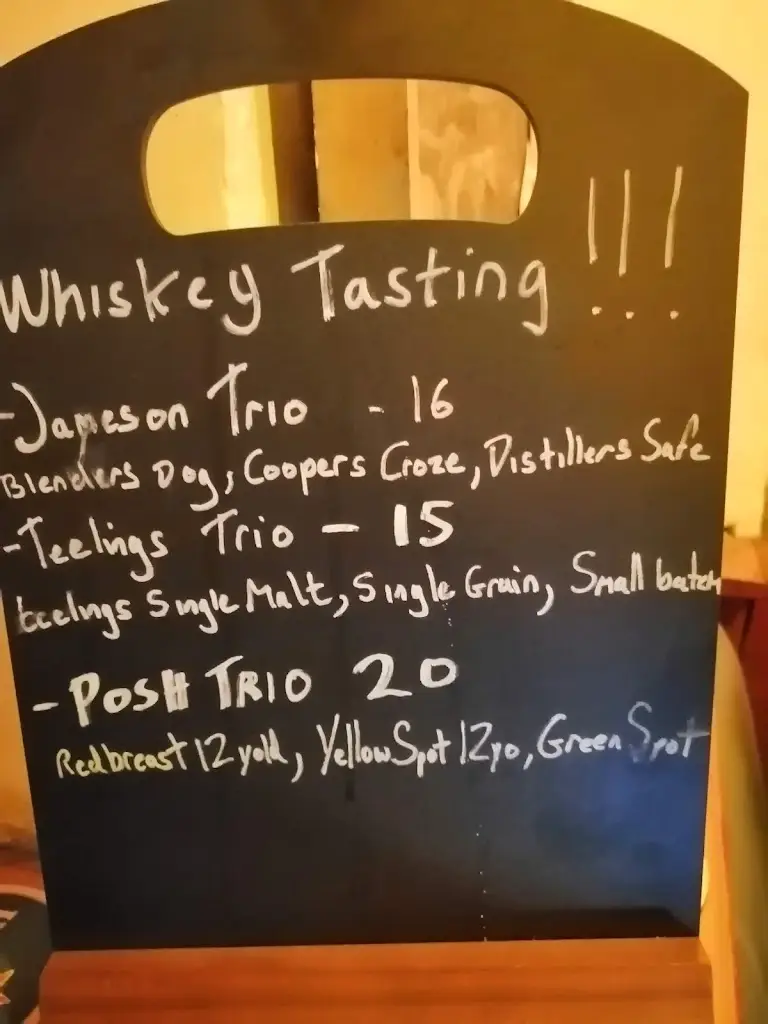 Whiskey Tasting !!!
- Jameson Trio - 16
Blenders Dog, Coopers Croze, Distillers Safe
- Teelings Trio - 15
teelings Single Malt, Single Grain, Small batch
- POSH TRIO 20
Redbreast 12 yold, Yellow Spot 12yo, Green Spot